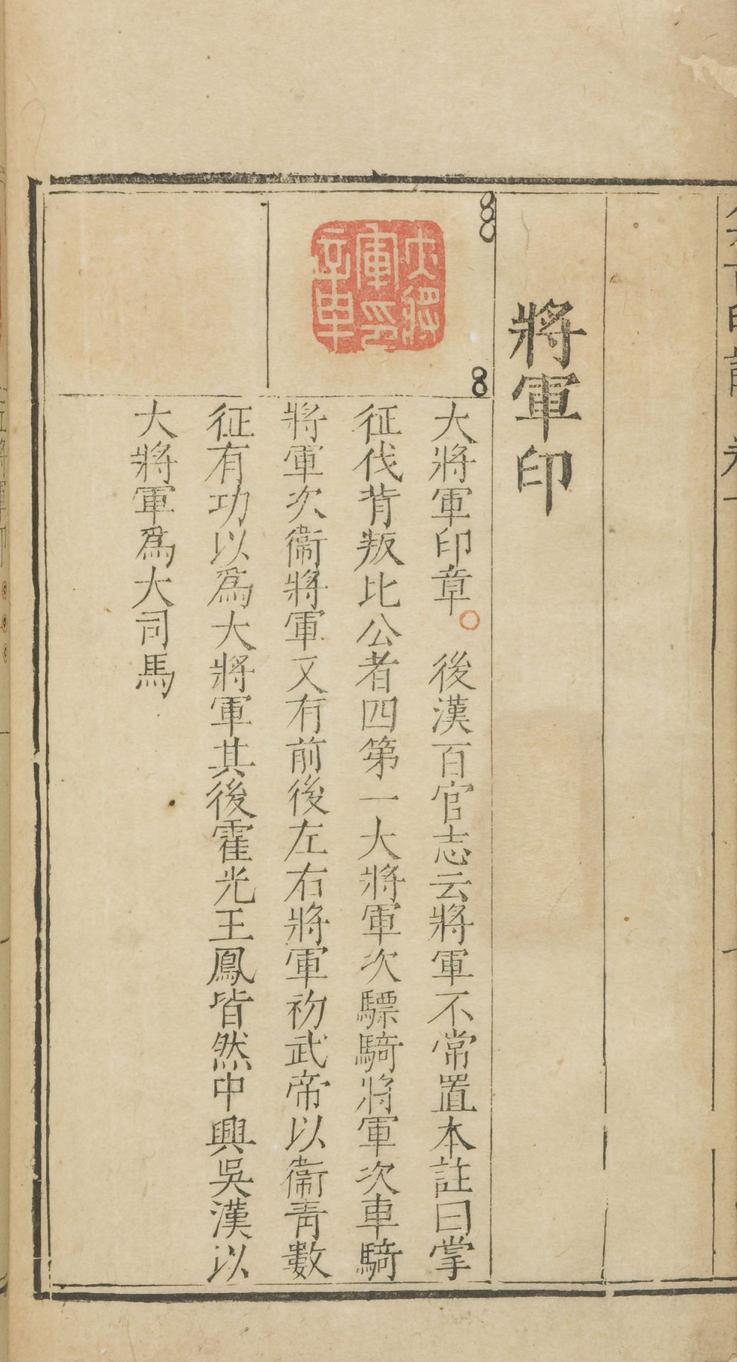 將軍印
大將軍印章。後漢百官志云將軍不常置本註曰掌
征伐背叛比公者四第一大將軍次驃騎將軍次車騎
將軍次衞將軍又有前後左右將軍初武帝以衞靑數
征有功以爲大將軍其後霍光王鳳皆然中興吳漢以
大將軍爲大司馬
大將
軍印
章